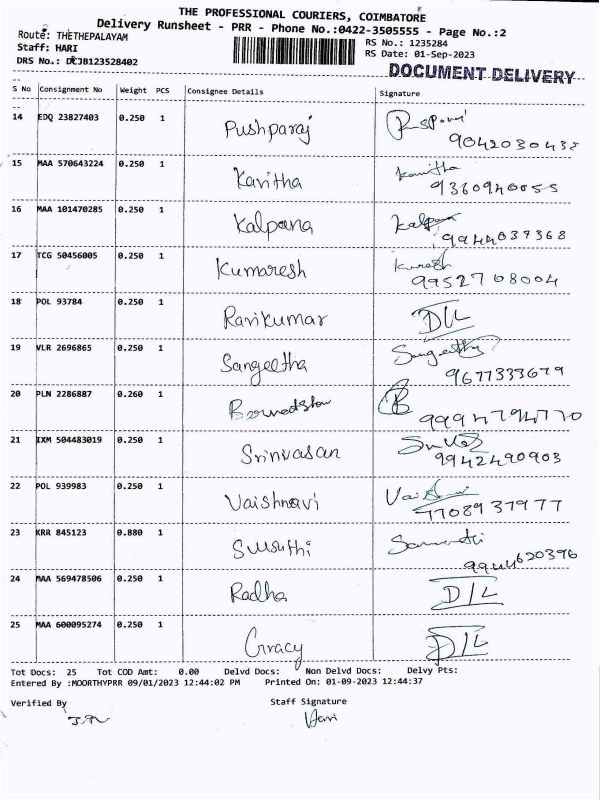 THE PROFESSIONAL COURIERS, COIMBATORE
Delivery Runsheet - PRR - Phone No.:0422-3505555 - Page No.:2
Route: THETHEPALAYAM
RS No.: 1235284
Staff: HARI
RS Date: 01-Sep-2023
DRS No.: DCJB123528402
DOCUMENT DELIVERY
S No Consignment No Weight PCS Consignee Details Signature
14 EDQ 23827403 0.250 1 Pushparaj
9042030438
15 MAA 570643224 0.250 1 Kavitha Kavitha
9360940055
16 MAA 101470285 0.250 1 Kalpana Kalpana
9944037368
17 TCG 50456005 0.250 1 Kumaresh
9952708004
18 POL 93784 0.250 1 Ravikumar D/L
19 VLR 2696865 0.250 1 Sangeetha Sangeetha
9677333679
20 PLN 2286887 0.260 1
9994794770
21 IXM 504483019 0.250 1 Srinivasan
9942490903
22 POL 939983 0.250 1 Vaishnavi
7708937977
23 KRR 845123 0.880 1
9944620396
24 MAA 569478506 0.250 1 Radha D/L
25 MAA 600095274 0.250 1 Gracy D/L
Tot Docs: 25 Tot COD Amt: 0.00 Delvd Docs: Non Delvd Docs: Delvy Pts:
Entered By :MOORTHYPRR 09/01/2023 12:44:02 PM Printed On: 01-09-2023 12:44:37
Verified By Staff Signature
Hari